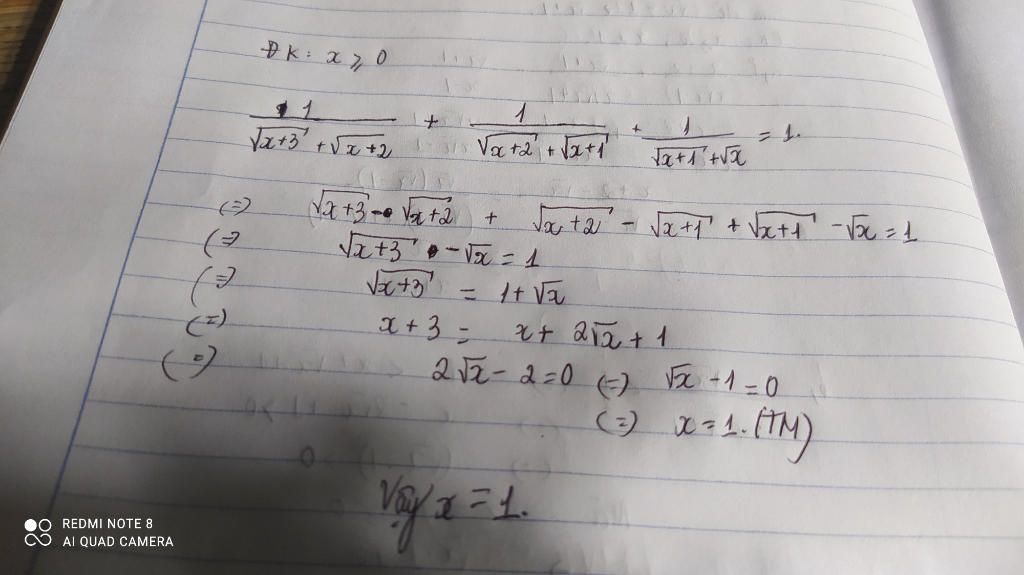 ĐK: x ⩾ 0
1/(√(x+3) + √(x+2)) + 1/(√(x+2) + √(x+1)) + 1/(√(x+1) + √x) = 1.
(=) √(x+3) - √(x+2) + √(x+2) - √(x+1) + √(x+1) - √x = 1
(=) √(x+3) - √x = 1
(=) √(x+3) = 1 + √x
(=) x + 3 = x + 2√x + 1
(=) 2√x - 2 = 0 (=) √x - 1 = 0
(=) x = 1. (TM)
Vậy x = 1.
REDMI NOTE 8
AI QUAD CAMERA